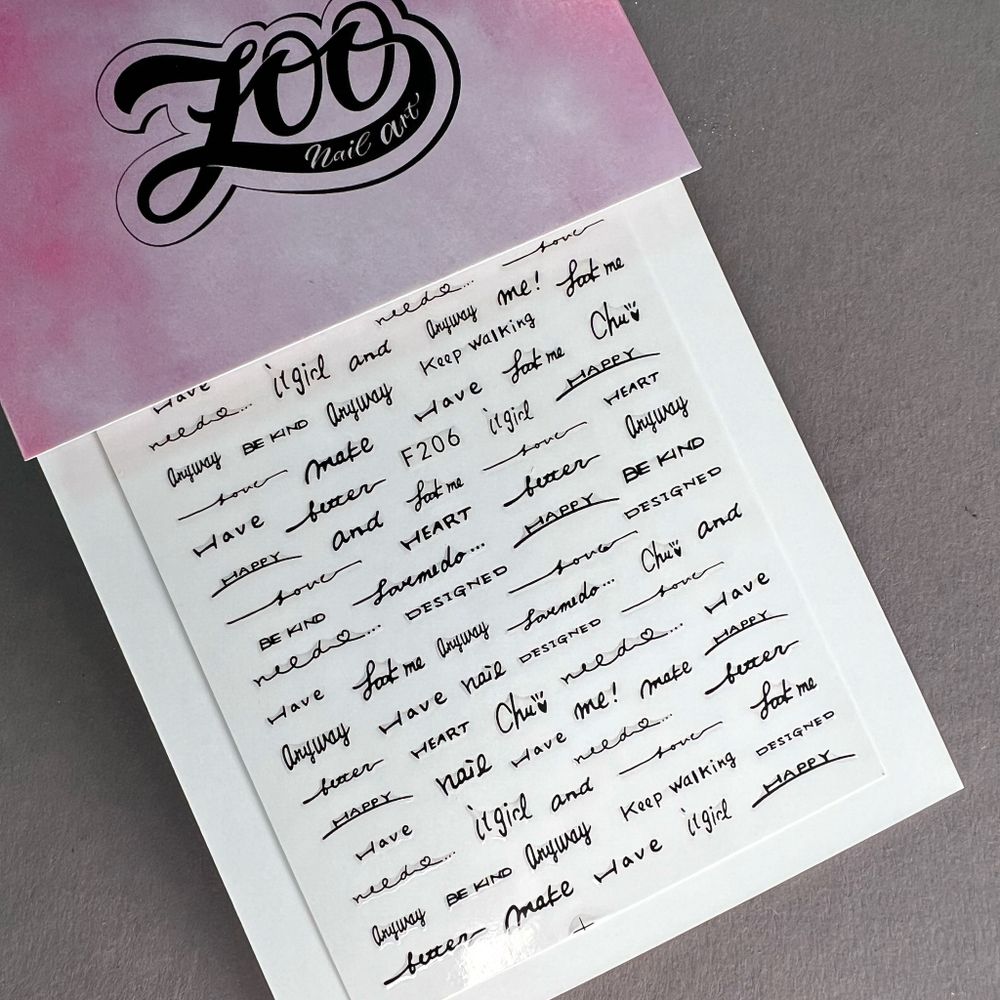 Zoo
Nail art
love
need...
me! look me
it girl and Anyway
Have Keep walking Chu
need... BE KIND Anyway Have look me HAPPY
Anyway make F206 it girl HEART
love better look me love Anyway
Have and HEART better BE KIND
HAPPY HAPPY DESIGNED
love DESIGNED love Chu and
BE KIND
need... Anyway love Have
Have look me nail DESIGNED need... HAPPY
Anyway Have Chu me! make better
better HEART nail Have need... love look me
HAPPY DESIGNED
Have it girl and Keep walking HAPPY
need... Anyway it girl
Anyway BE KIND make Have
better